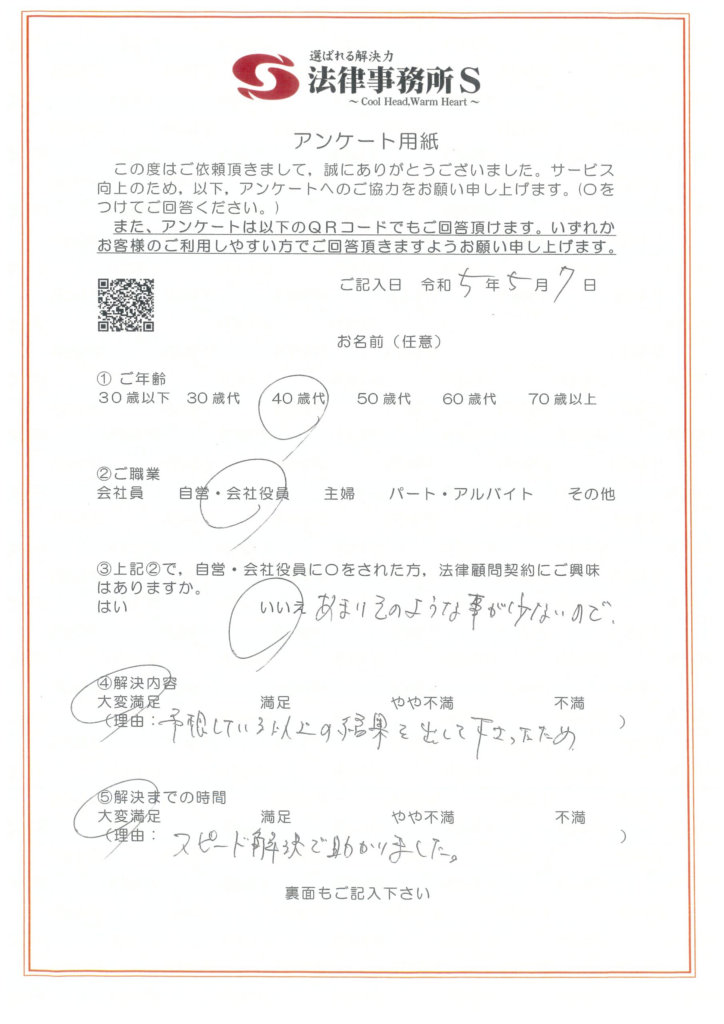 選ばれる解決力
法律事務所S
～Cool Head,Warm Heart～
アンケート用紙
この度はご依頼頂きまして，誠にありがとうございました。サービス
向上のため，以下，アンケートへのご協力をお願い申し上げます。（○を
つけてご回答ください。）
また、アンケートは以下のＱＲコードでもご回答頂けます。いずれか
お客様のご利用しやすい方でご回答頂きますようお願い申し上げます。
ご記入日　令和 5 年 5 月 7 日
お名前（任意）
① ご年齢
30歳以下　30歳代　40歳代　50歳代　60歳代　70歳以上
②ご職業
会社員　自営・会社役員　主婦　パート・アルバイト　その他
③上記②で，自営・会社役員に○をされた方，法律顧問契約にご興味
はありますか。
はい　いいえ　あまりそのような事が少ないので.
④解決内容
大変満足　満足　やや不満　不満
（理由：予想している以上の結果を出して下さったため）
⑤解決までの時間
大変満足　満足　やや不満　不満
（理由：スピード解決で助かりました。）
裏面もご記入下さい